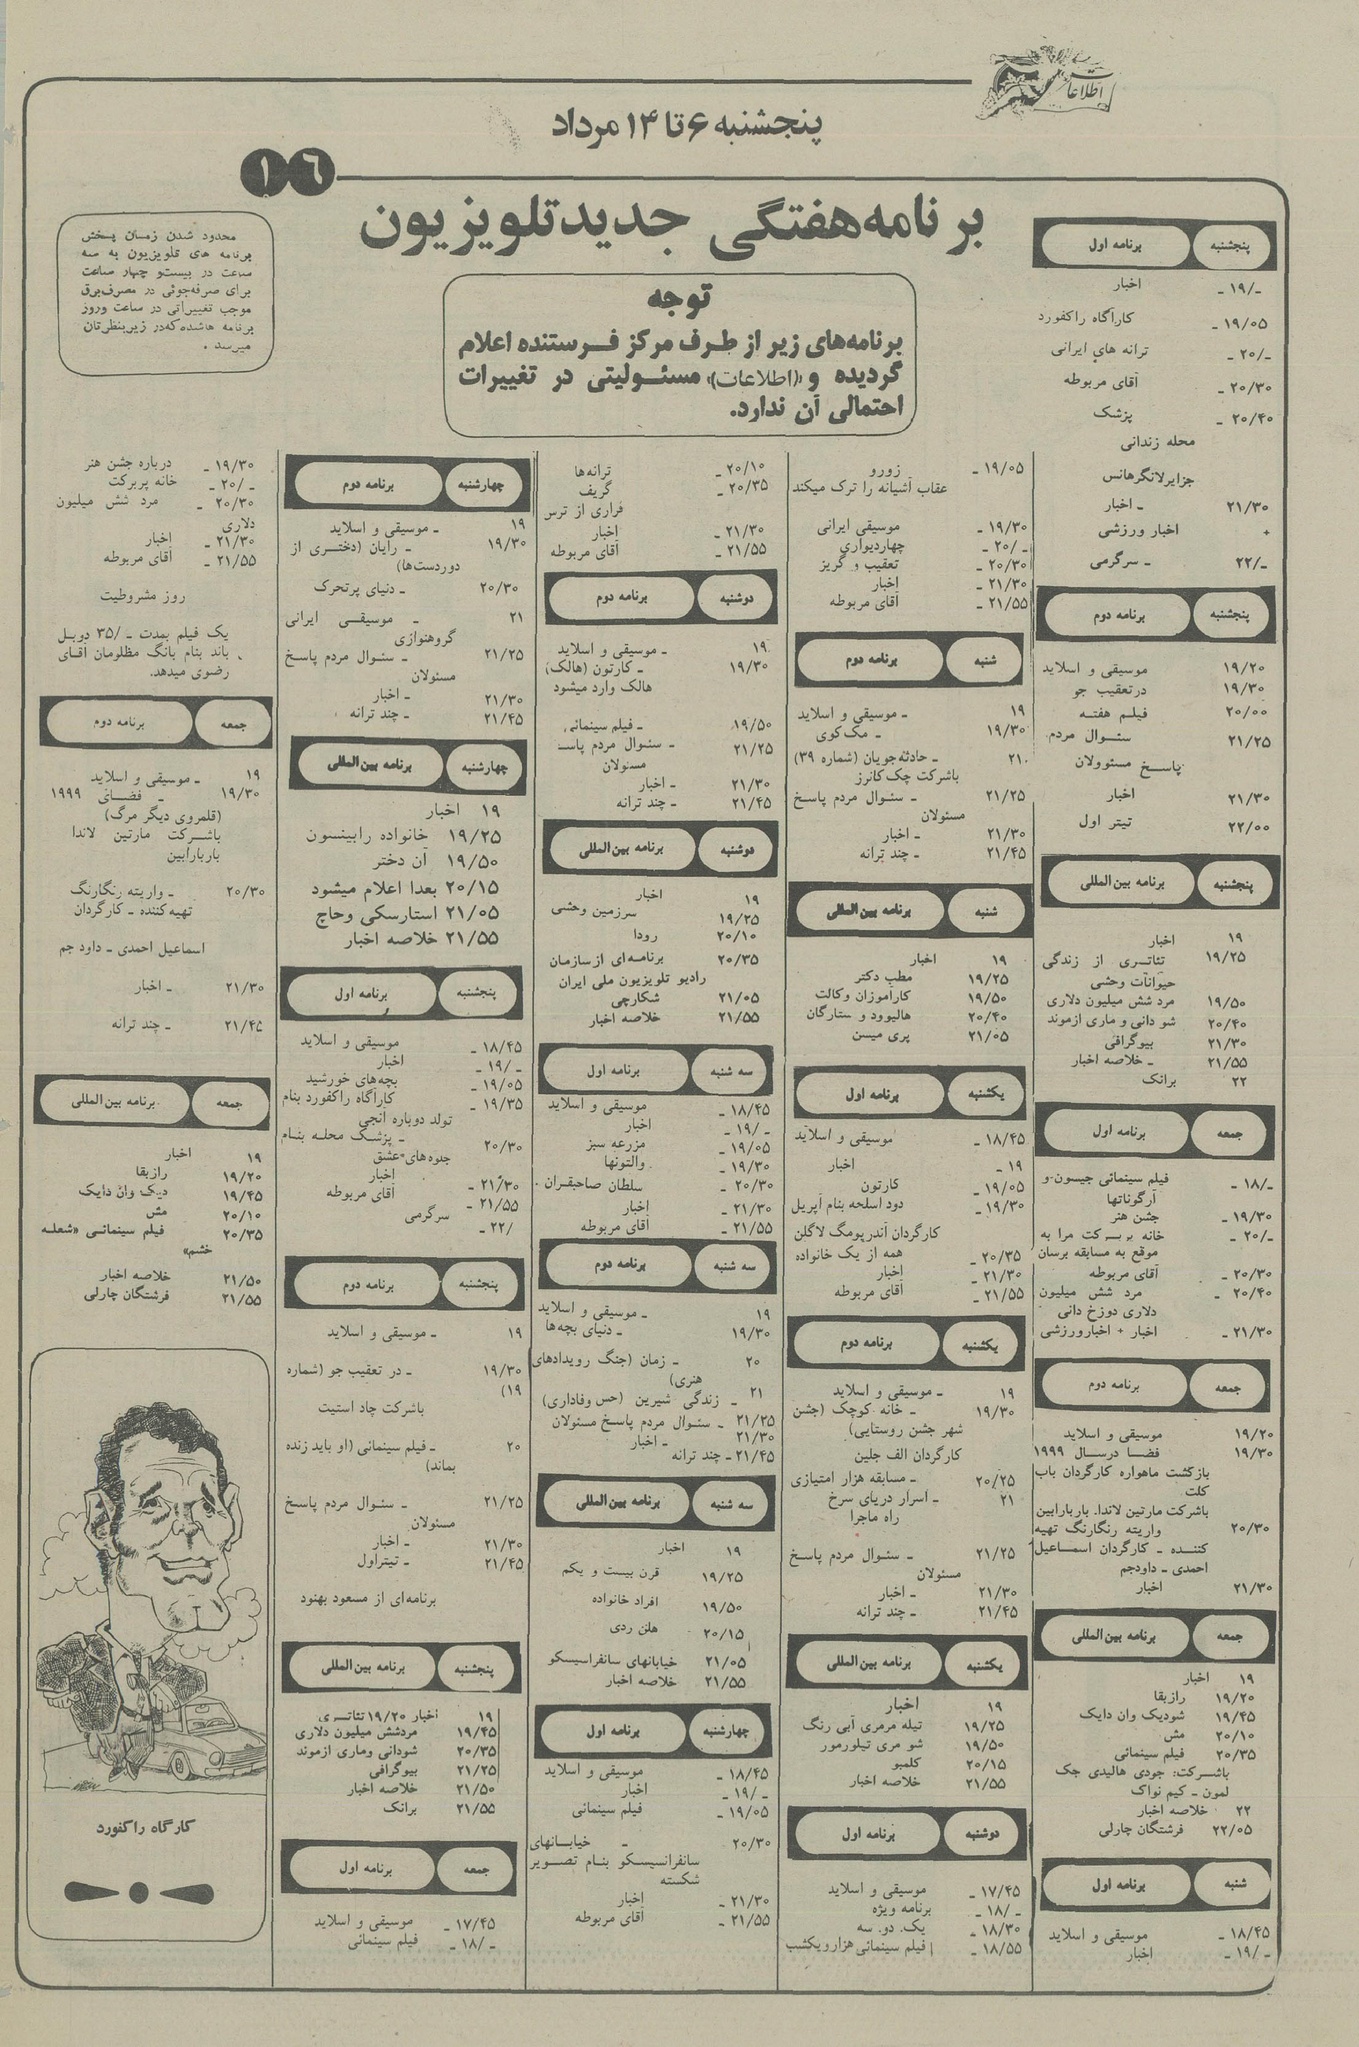 اطلاعات
پنجشنبه ۶ تا ۱۳ مرداد
۱۶
برنامه هفتگی جدید تلویزیون
محدود شدن زمان پخش
برنامه های تلویزیون به سه
ساعت در بیست و چهار ساعت
برای صرفه‌جوئی در مصرف برق
موجب تغییراتی در ساعت و روز
برنامه ها شده که در زیر بنظرتان
میرسد .
توجه
برنامه‌های زیر از طرف مرکز فرستنده اعلام
گردیده و «اطلاعات» مسئولیتی در تغییرات
احتمالی آن ندارد.
پنجشنبه برنامه اول
۱۹/- - اخبار
۱۹/۰۵ - کارآگاه راکفورد
۲۰/- - ترانه های ایرانی
۲۰/۳۰ - آقای مربوطه
۲۰/۴۰ - پزشک
محله زندانی
جزایر لانگرهانس
۲۱/۳۰ - اخبار
+ اخبار ورزشی
۲۲/- - سرگرمی
پنجشنبه برنامه دوم
۱۹/۲۰ موسیقی و اسلاید
۱۹/۳۰ در تعقیب جو
۲۰/۰۰ فیلم هفته
۲۱/۲۵ سئوال مردم.
پاسخ مسئوولان
۲۱/۳۰ اخبار
۲۲/۰۰ تیتر اول
پنجشنبه برنامه بین المللی
۱۹ اخبار
۱۹/۲۵ تئاتری از زندگی
حیوانات وحشی
۱۹/۵۰ مرد شش میلیون دلاری
۲۰/۴۰ شو دانی و ماری ازموند
۲۱/۳۰ بیوگرافی
۲۱/۵۵ - خلاصه اخبار
۲۲ برانک
جمعه برنامه اول
۱۸/- - فیلم سینمائی جیسون و
آرگوناتها
۱۹/۳۰ - جشن هنر
۲۰/- - خانه برکت مرا به
موقع به مسابقه برسان
۲۰/۳۰ - آقای مربوطه
۲۰/۴۰ - مرد شش میلیون
دلاری دوزخ دانی
۲۱/۳۰ - اخبار + اخبار ورزشی
جمعه برنامه دوم
۱۹/۲۰ موسیقی و اسلاید
۱۹/۳۰ فضا در سال ۱۹۹۹
بازگشت ماهواره کارگردان باب
کلت
باشرکت مارتین لاندا. باربارابین
۲۰/۳۰ واریته رنگارنگ تهیه
کننده - کارگردان اسماعیل
احمدی - داودجم
۲۱/۳۰ اخبار
جمعه برنامه بین المللی
۱۹ اخبار
۱۹/۲۰ رازبقا
۱۹/۴۵ شودیک وان دایک
۲۰/۱۰ مش
۲۰/۳۵ فیلم سینمائی
باشرکت: جودی هالیدی جک
لمون - کیم نواک
۲۲ خلاصه اخبار
۲۲/۰۵ فرشتگان چارلی
شنبه برنامه اول
۱۸/۴۵ - موسیقی و اسلاید
۱۹/- - اخبار
۱۹/۰۵ - زورو
عقاب آشیانه را ترک میکند
۱۹/۳۰ - موسیقی ایرانی
۲۰/- - چهاردیواری
۲۰/۳۰ - تعقیب و گریز
۲۱/۳۰ - اخبار
۲۱/۵۵ - آقای مربوطه
شنبه برنامه دوم
۱۹ - موسیقی و اسلاید
۱۹/۳۰ - مک‌کوی
۲۱ - حادثه‌جویان (شماره ۳۹)
باشرکت چک‌کانرز
۲۱/۲۵ - سئوال مردم پاسخ
مسئولان
۲۱/۳۰ - اخبار
۲۱/۴۵ - چند ترانه
شنبه برنامه بین المللی
۱۹ اخبار
۱۹/۲۵ مطب دکتر
۱۹/۵۰ کارآموزان وکالت
۲۰/۴۰ هالیوود و ستارگان
۲۱/۰۵ پری میسن
یکشنبه برنامه اول
۱۸/۴۵ - موسیقی و اسلاید
۱۹ - اخبار
۱۹/۰۵ - کارتون
۱۹/۳۰ - دود اسلحه بنام آپریل
کارگردان آندر پومگ لاگلن
۲۰/۳۵ - همه از یک خانواده
۲۱/۳۰ - اخبار
۲۱/۵۵ - آقای مربوطه
یکشنبه برنامه دوم
۱۹ - موسیقی و اسلاید
۱۹/۳۰ - خانه کوچک (جشن
شهر جشن روستایی)
کارگردان الف جلین
۲۰/۲۵ - مسابقه هزار امتیازی
۲۱ - اسرار دریای سرخ
راه ماجرا
۲۱/۲۵ - سئوال مردم پاسخ
مسئولان
۲۱/۳۰ - اخبار
۲۱/۴۵ - چند ترانه
یکشنبه برنامه بین المللی
۱۹ اخبار
۱۹/۲۵ تیله مرمری آبی رنگ
۱۹/۵۰ شو مری تیلورمور
۲۰/۱۵ کلمبو
۲۱/۵۵ خلاصه اخبار
دوشنبه برنامه اول
۱۷/۴۵ - موسیقی و اسلاید
۱۸/- - برنامه ویژه
۱۸/۳۰ - یک. دو. سه
۱۸/۵۵ - فیلم سینمائی هزار و یکشب
۲۰/۱۰ - ترانه‌ها
۲۰/۳۵ - گریف
فراری از ترس
۲۱/۳۰ - اخبار
۲۱/۵۵ - آقای مربوطه
دوشنبه برنامه دوم
۱۹ - موسیقی و اسلاید
۱۹/۳۰ - کارتون (هالک)
هالک وارد میشود
۱۹/۵۰ - فیلم سینمائی
۲۱/۲۵ - سئوال مردم پاسخ
مسئولان
۲۱/۳۰ - اخبار
۲۱/۴۵ - چند ترانه
دوشنبه برنامه بین المللی
۱۹ اخبار
۱۹/۲۵ سرزمین وحشی
۲۰/۱۰ رودا
۲۰/۳۵ برنامه‌ای از سازمان
رادیو تلویزیون ملی ایران
۲۱/۰۵ شکارچی
۲۱/۵۵ خلاصه اخبار
سه شنبه برنامه اول
۱۸/۴۵ - موسیقی و اسلاید
۱۹/- - اخبار
۱۹/۰۵ - مزرعه سبز
۱۹/۳۰ - والتونها
۲۰/۳۰ - سلطان صاحبقران .
۲۱/۳۰ - اخبار
۲۱/۵۵ - آقای مربوطه
سه شنبه برنامه دوم
۱۹ - موسیقی و اسلاید
۱۹/۳۰ - دنیای بچه‌ها
۲۰ - زمان (جنگ رویدادهای
هنری)
۲۱ - زندگی شیرین (حس وفاداری)
۲۱/۲۵ - سئوال مردم پاسخ مسئولان
۲۱/۳۰ - اخبار
۲۱/۴۵ - چند ترانه
سه شنبه برنامه بین المللی
۱۹ اخبار
۱۹/۲۵ قرن بیست و یکم
۱۹/۵۰ افراد خانواده
۲۰/۱۵ هلن ردی
۲۱/۰۵ خیابانهای سانفرانسیسکو
۲۱/۵۵ خلاصه اخبار
چهارشنبه برنامه اول
۱۸/۴۵ - موسیقی و اسلاید
۱۹/- - اخبار
۱۹/۰۵ - فیلم سینمائی
۲۰/۳۰ - خیابانهای
سانفرانسیسکو بنام تصویر
شکسته
۲۱/۳۰ - اخبار
۲۱/۵۵ - آقای مربوطه
چهارشنبه برنامه دوم
۱۹ - موسیقی و اسلاید
۱۹/۳۰ - رایان (دختری از
دوردست‌ها)
۲۰/۳۰ - دنیای پرتحرک
۲۱ - موسیقی ایرانی
گروهنوازی
۲۱/۲۵ - سئوال مردم پاسخ
مسئولان
۲۱/۳۰ - اخبار
۲۱/۴۵ - چند ترانه
چهارشنبه برنامه بین المللی
۱۹ اخبار
۱۹/۲۵ خانواده رابینسون
۱۹/۵۰ آن دختر
۲۰/۱۵ بعدا اعلام میشود
۲۱/۰۵ استارسکی وحاچ
۲۱/۵۵ خلاصه اخبار
پنجشنبه برنامه اول
۱۸/۴۵ - موسیقی و اسلاید
۱۹/- - اخبار
۱۹/۰۵ - بچه‌های خورشید
۱۹/۳۵ - کارآگاه راکفورد بنام
تولد دوباره آنجی
۲۰/۳۰ - پزشک محله بنام
جلوه‌های عشق
۲۱/۳۰ - اخبار
۲۱/۵۵ - آقای مربوطه
۲۲/ - سرگرمی
پنجشنبه برنامه دوم
۱۹ - موسیقی و اسلاید
۱۹/۳۰ - در تعقیب جو (شماره
۱۹)
باشرکت چاد استیت
۲۰ - فیلم سینمائی (او باید زنده
بماند)
۲۱/۲۵ - سئوال مردم پاسخ
مسئولان
۲۱/۳۰ - اخبار
۲۱/۴۵ - تیتراول
برنامه‌ای از مسعود بهنود
پنجشنبه برنامه بین المللی
۱۹ اخبار ۱۹/۲۰ تئاتری
۱۹/۴۵ مردشش میلیون دلاری
۲۰/۳۵ شودانی وماری ازموند
۲۱/۲۵ بیوگرافی
۲۱/۵۰ خلاصه اخبار
۲۱/۵۵ برانک
جمعه برنامه اول
۱۷/۴۵ - موسیقی و اسلاید
۱۸/- - فیلم سینمائی
۱۹/۳۰ - درباره جشن هنر
۲۰/- - خانه پربرکت
۲۰/۳۰ - مرد شش میلیون
دلاری
۲۱/۳۰ - اخبار
۲۱/۵۵ - آقای مربوطه
روز مشروطیت
یک فیلم بمدت -/۳۵ دوبل
باند بنام بانگ مظلومان آقای
رضوی میدهد.
جمعه برنامه دوم
۱۹ - موسیقی و اسلاید
۱۹/۳۰ - فضای ۱۹۹۹
(قلمروی دیگر مرگ)
باشرکت مارتین لاندا
باربارابین
۲۰/۳۰ - واریته رنگارنگ
تهیه‌کننده - کارگردان
اسماعیل احمدی - داود جم
۲۱/۳۰ - اخبار
۲۱/۴۵ - چند ترانه
جمعه برنامه بین المللی
۱۹ اخبار
۱۹/۲۰ رازبقا
۱۹/۴۵ دیک وان دایک
۲۰/۱۰ مش
۲۰/۳۵ فیلم سینمائی «شعله
خشم»
۲۱/۵۰ خلاصه اخبار
۲۱/۵۵ فرشتگان چارلی
کارگاه راکفورد